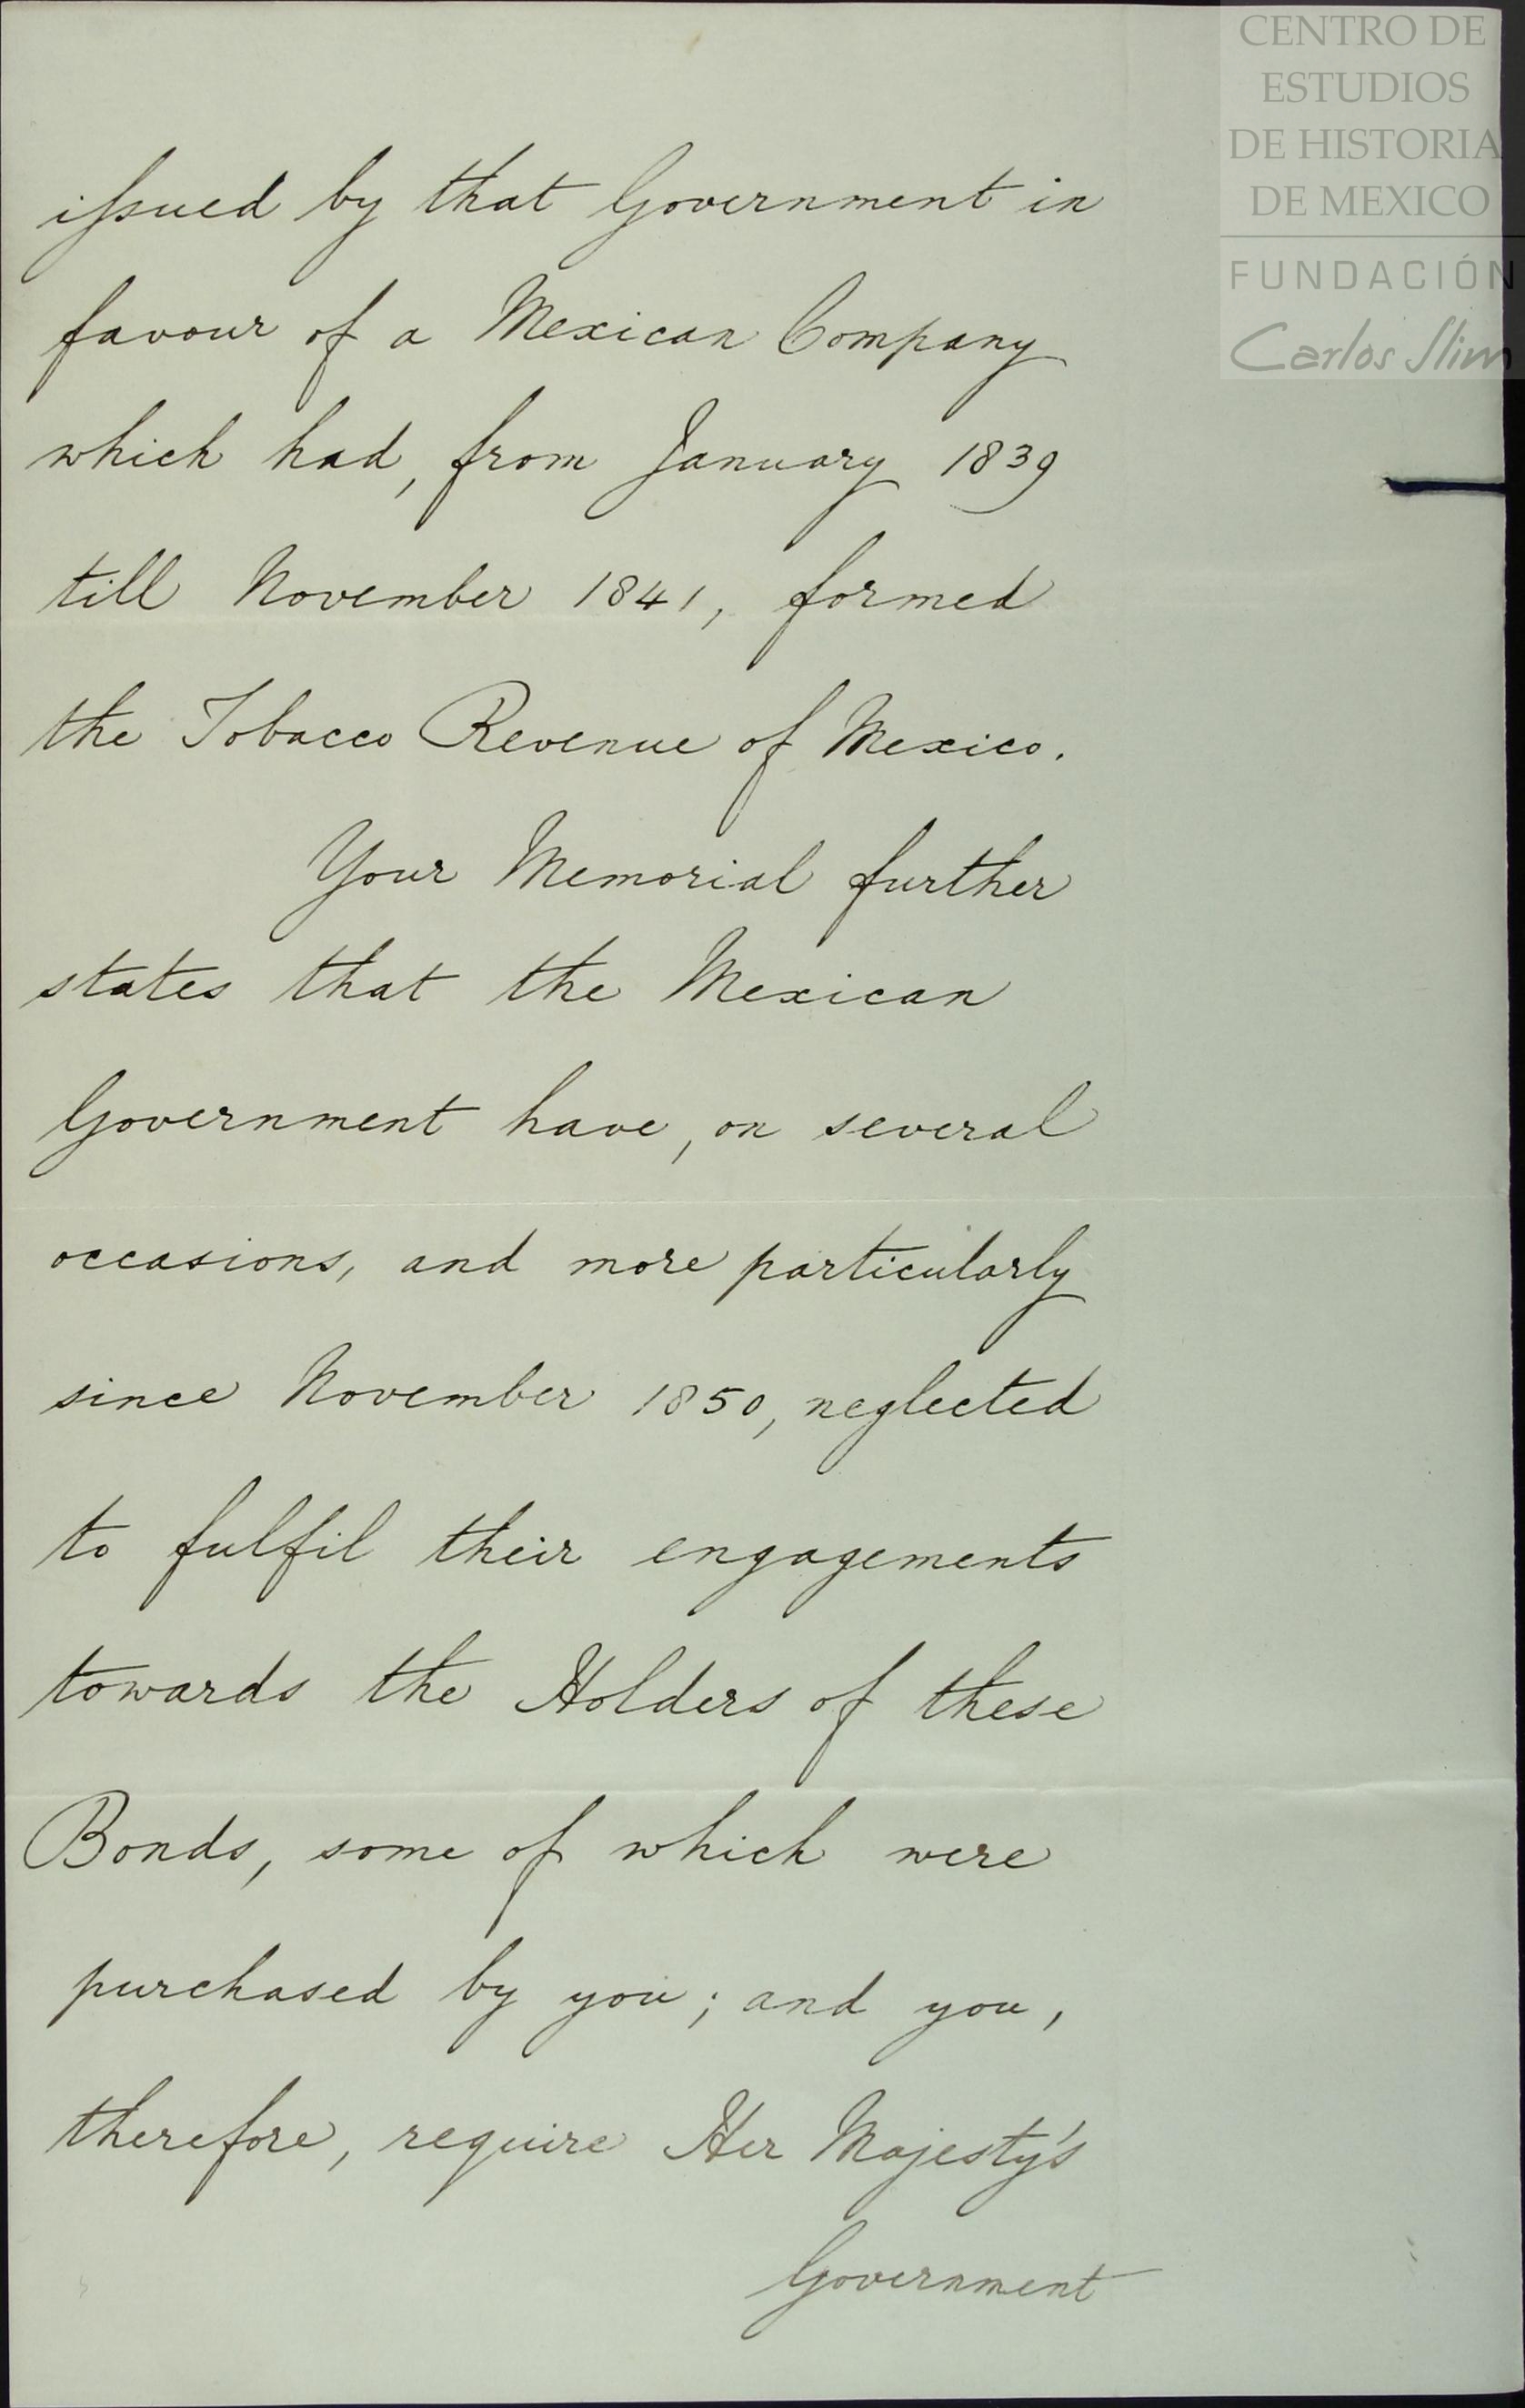 CENTRO DE
ESTUDIOS
DE HISTORIA
DE MEXICO
FUNDACIÓN
Carlos Slim
issued by that Government in
favour of a Mexican Company
which had, from January 1839
till November 1841, formed
the Tobacco Revenue of Mexico.
Your Memorial further
states that the Mexican
Government have, on several
occasions, and more particularly
since November 1850, neglected
to fulfil their engagements
towards the Holders of these
Bonds, some of which were
purchased by you; and you,
therefore, require Her Majesty's
Government